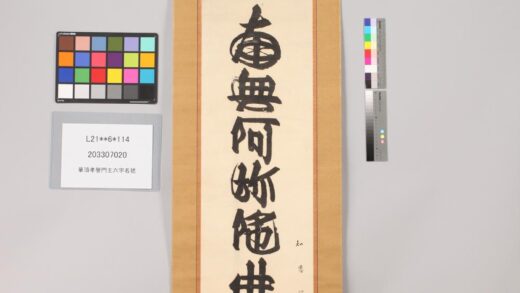 南無阿弥陀佛
知恩
L21**6*114
203307020
華頂孝誉門主六字名号